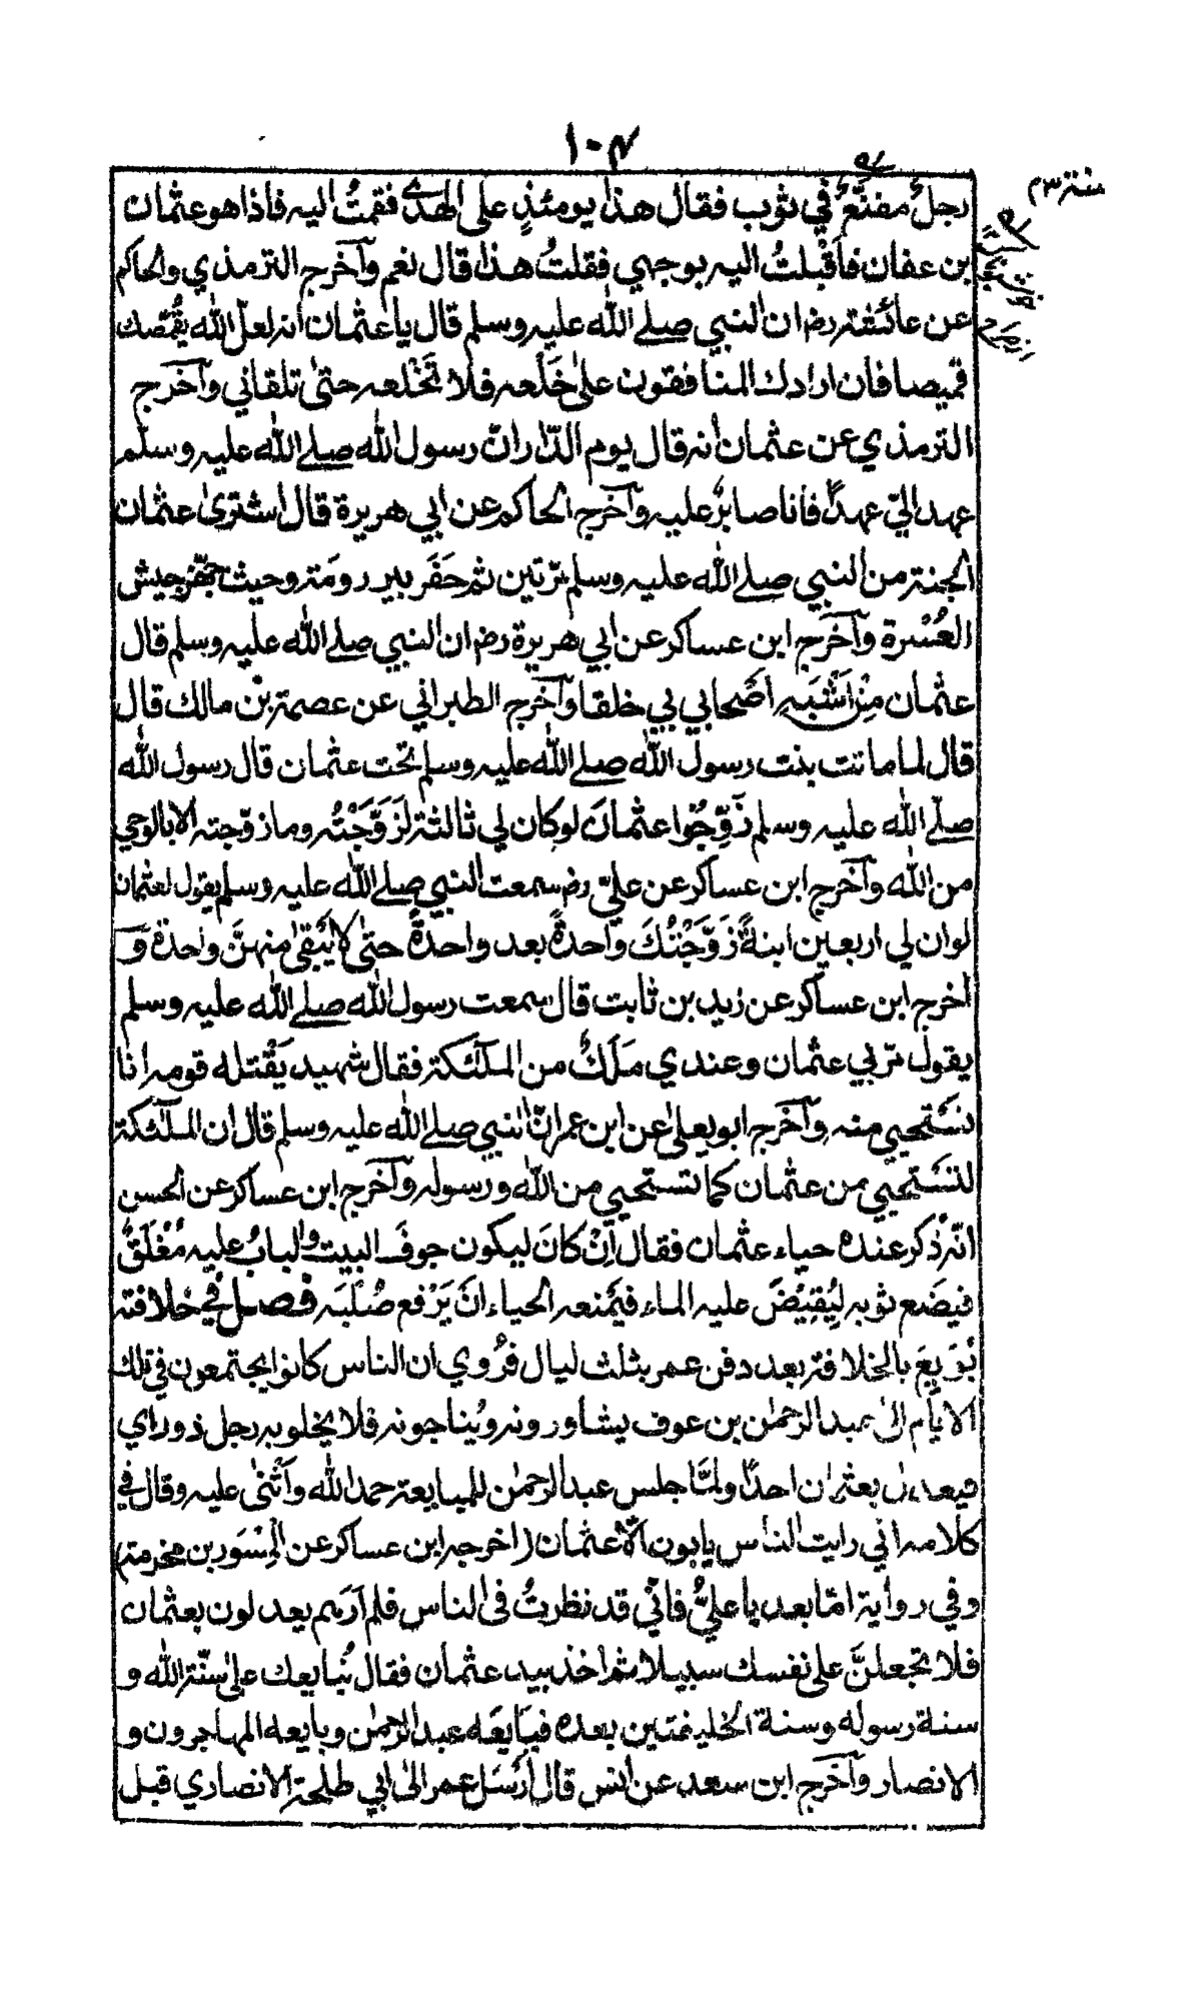 ١٠٤
سنة ٢٣
رجلٌ مقنَّعٌ في ثوب فقال هذا يومئذٍ على الهدى فقمتُ اليه فاذا هو عثمان
بن عفان فاَقْبلتُ اليه بوجهي فقلتُ هذا قال نعم وآخرج الترمذي والحاكم
عن عائشة رض ان النبي صلى الله عليه وسلم قال يا عثمان انه لعلّ الله يقُمّصك
قميصا فان ارادك المنافقون على خَلْعه فلا تَخْلعه حتى تلقاني وآخرج
الترمذي عن عثمان انه قال يوم الدّار انّ رسول الله صلى الله عليه وسلم
عهد اليّ عهدًا فانا صابرٌ عليه وآخرج الحاكم عن ابي هريرة قال اشترى عثمان
الجنة من النبي صلى الله عليه وسلم مرّتين ثم حَفَر بير رومة وحيث جهّز جيش
العُسْرة وآخرج ابن عساكر عن ابي هريرة رض ان النبي صلى الله عليه وسلم قال
عثمان مِنْ اَشْبَهِ اصْحابي بي خلقا وآخرج الطبراني عن عصمة بْن مالك قال
قال لما ماتت بنت رسول الله صلى الله عليه وسلم تحت عثمان قال رسول الله
صلى الله عليه وسلم زَوِّجُوا عثمانَ لو كان لي ثالثة لَزَوَّجْتُه وما زوّجته الا بالوحي
من الله وآخرج ابن عساكر عن عليّ رض سمعت النبي صلى الله عليه وسلم يقول لعثمان
لو ان لي اربعين ابنةً زَوَّجْتُكَ واحدةً بعد واحدةً حتى لا يَبْقى منهنَّ واحدة وَ
اخرج ابن عساكر عن زيد بن ثابت قال سمعت رسول الله صلى الله عليه وسلم
يقول مرّ بي عثمان وعندي مَلَكٌ من الملائكة فقال شهيد يَقْتله قومه انا
نسَتَحيي منه وآخرج ابو يعلى عن ابن عمر انّ النبي صلى الله عليه وسلم قال ان الملائكة
لتسَتَحيي من عثمان كما تستحيي من الله ورسوله وآخرج ابن عساكر عن الحسن
انّه ذُكر عنده حياء عثمان فقال اِنْ كانَ ليكون جوفَ البيت والبابُ عليه مُغْلَقٌ
فيضَع ثوبه ليُفيْضَ عليه الماء فيَمنعه الحياء انَ يَرْفع صُلْبَه فصل في خلافته
بُوْيعَ بالخلافة بعد دفن عمر بثلث ليال فرُوي ان الناس كانوا يجتمعون في تلك
الايّام الى عبد الرحمٰن بن عوف يشاورونه ويُناجونه فلا يخلو به رجل ذو راي
فيعدل بعثمان احدًا ولمَّا جلس عبد الرحمٰن للمبايعة حمد الله وآثْنى عليه وقال في
كلامه اني رايت الناس يابون الّا عثمان (اخرجه ابن عساكر عن المِسْوَر بن مخرمة)
وفي رواية امّا بعد يا عليُّ فانّي قد نظرتُ فى الناس فلم اَرَهم يعدلون بعثمان
فلا تجعلنَّ على نفسك سبيلا ثم اخذ بيد عثمان فقال نُبايعك على سنّة الله و
سنة رسوله وسنة الخليفتين بعده فبَايَعَه عبد الرحمٰن وبايعه المهاجرون و
الانصار وآخرج ابن سعد عن انس قال اَرْسَل عمر الى ابي طلحة الانصاري قبل